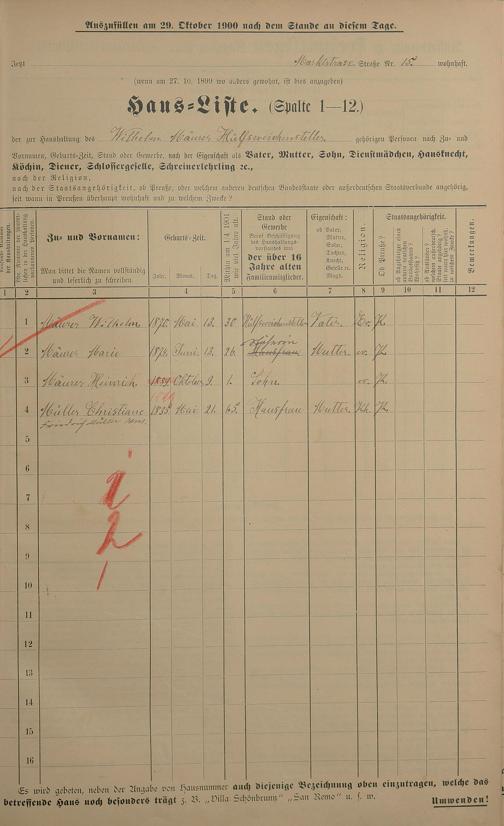 Auszufüllen am 29. Oktober 1900 nach dem Stande an diesem Tage.
Jetzt Marktstrasse Straße Nr. 15 wohnhaft.
(wenn am 27. 10. 1899 wo anders gewohnt, ist dies anzugeben)
Haus-Liste. (Spalte 1—12.)
der zur Haushaltung des Wilhelm Mäurer Hülfsweichensteller gehörigen Personen nach Zu- und
Vornamen, Geburts-Zeit, Stand oder Gewerbe, nach der Eigenschaft als Vater, Mutter, Sohn, Dienstmädchen, Hausknecht,
Köchin, Diener, Schlossergeselle, Schreinerlehrling ꝛc.,
nach der Religion,
nach der Staatsangehörigkeit, ob Preuße, oder welchem anderen deutschen Bundesstaate oder außerdeutschen Staatsverbande angehörig,
seit wann in Preußen überhaupt wohnhaft und zu welchem Zwecke?
Zu- und Vornamen:
Man bittet die Namen vollständig und leserlich zu schreiben
Geburts-Zeit.
Jahr. Monat. Tag.
Mithin am 1/4 1901 wie viel Jahre alt.
Stand oder Gewerbe
der über 16 Jahre alten Familienmitglieder.
Eigenschaft:
ob Vater, Mutter, Sohn, Tochter, Knecht, Geselle o. Magd.
Religion.
Ob Preuße?
Staatsangehörigkeit.
Bemerkungen.
1 2 3 4 5 6 7 8 9 10 11 12
1 Mäurer Wilhelm 1870 Mai 13. 30 Hülfsweichensteller Vater Ev. Pr.
2 Mäurer Marie 1874 Juni 13. 26. Hausfrau Mutter ev. Pr.
3 Mäurer Heinrich 1899 Oktober 9. 1. Sohn ev. Pr.
4 Müller Christiane 1835 Mai 21. 65. Hausfrau Mutter Pr.
Friedrich Müller
5
6
7
8
9
10
11
12
13
14
15
16
Es wird gebeten, neben der Angabe von Hausnummer auch diejenige Bezeichnung oben einzutragen, welche das
betreffende Haus noch besonders trägt z. B. „Villa Schönbrunn" „San Remo" u. s. w. Umwenden!